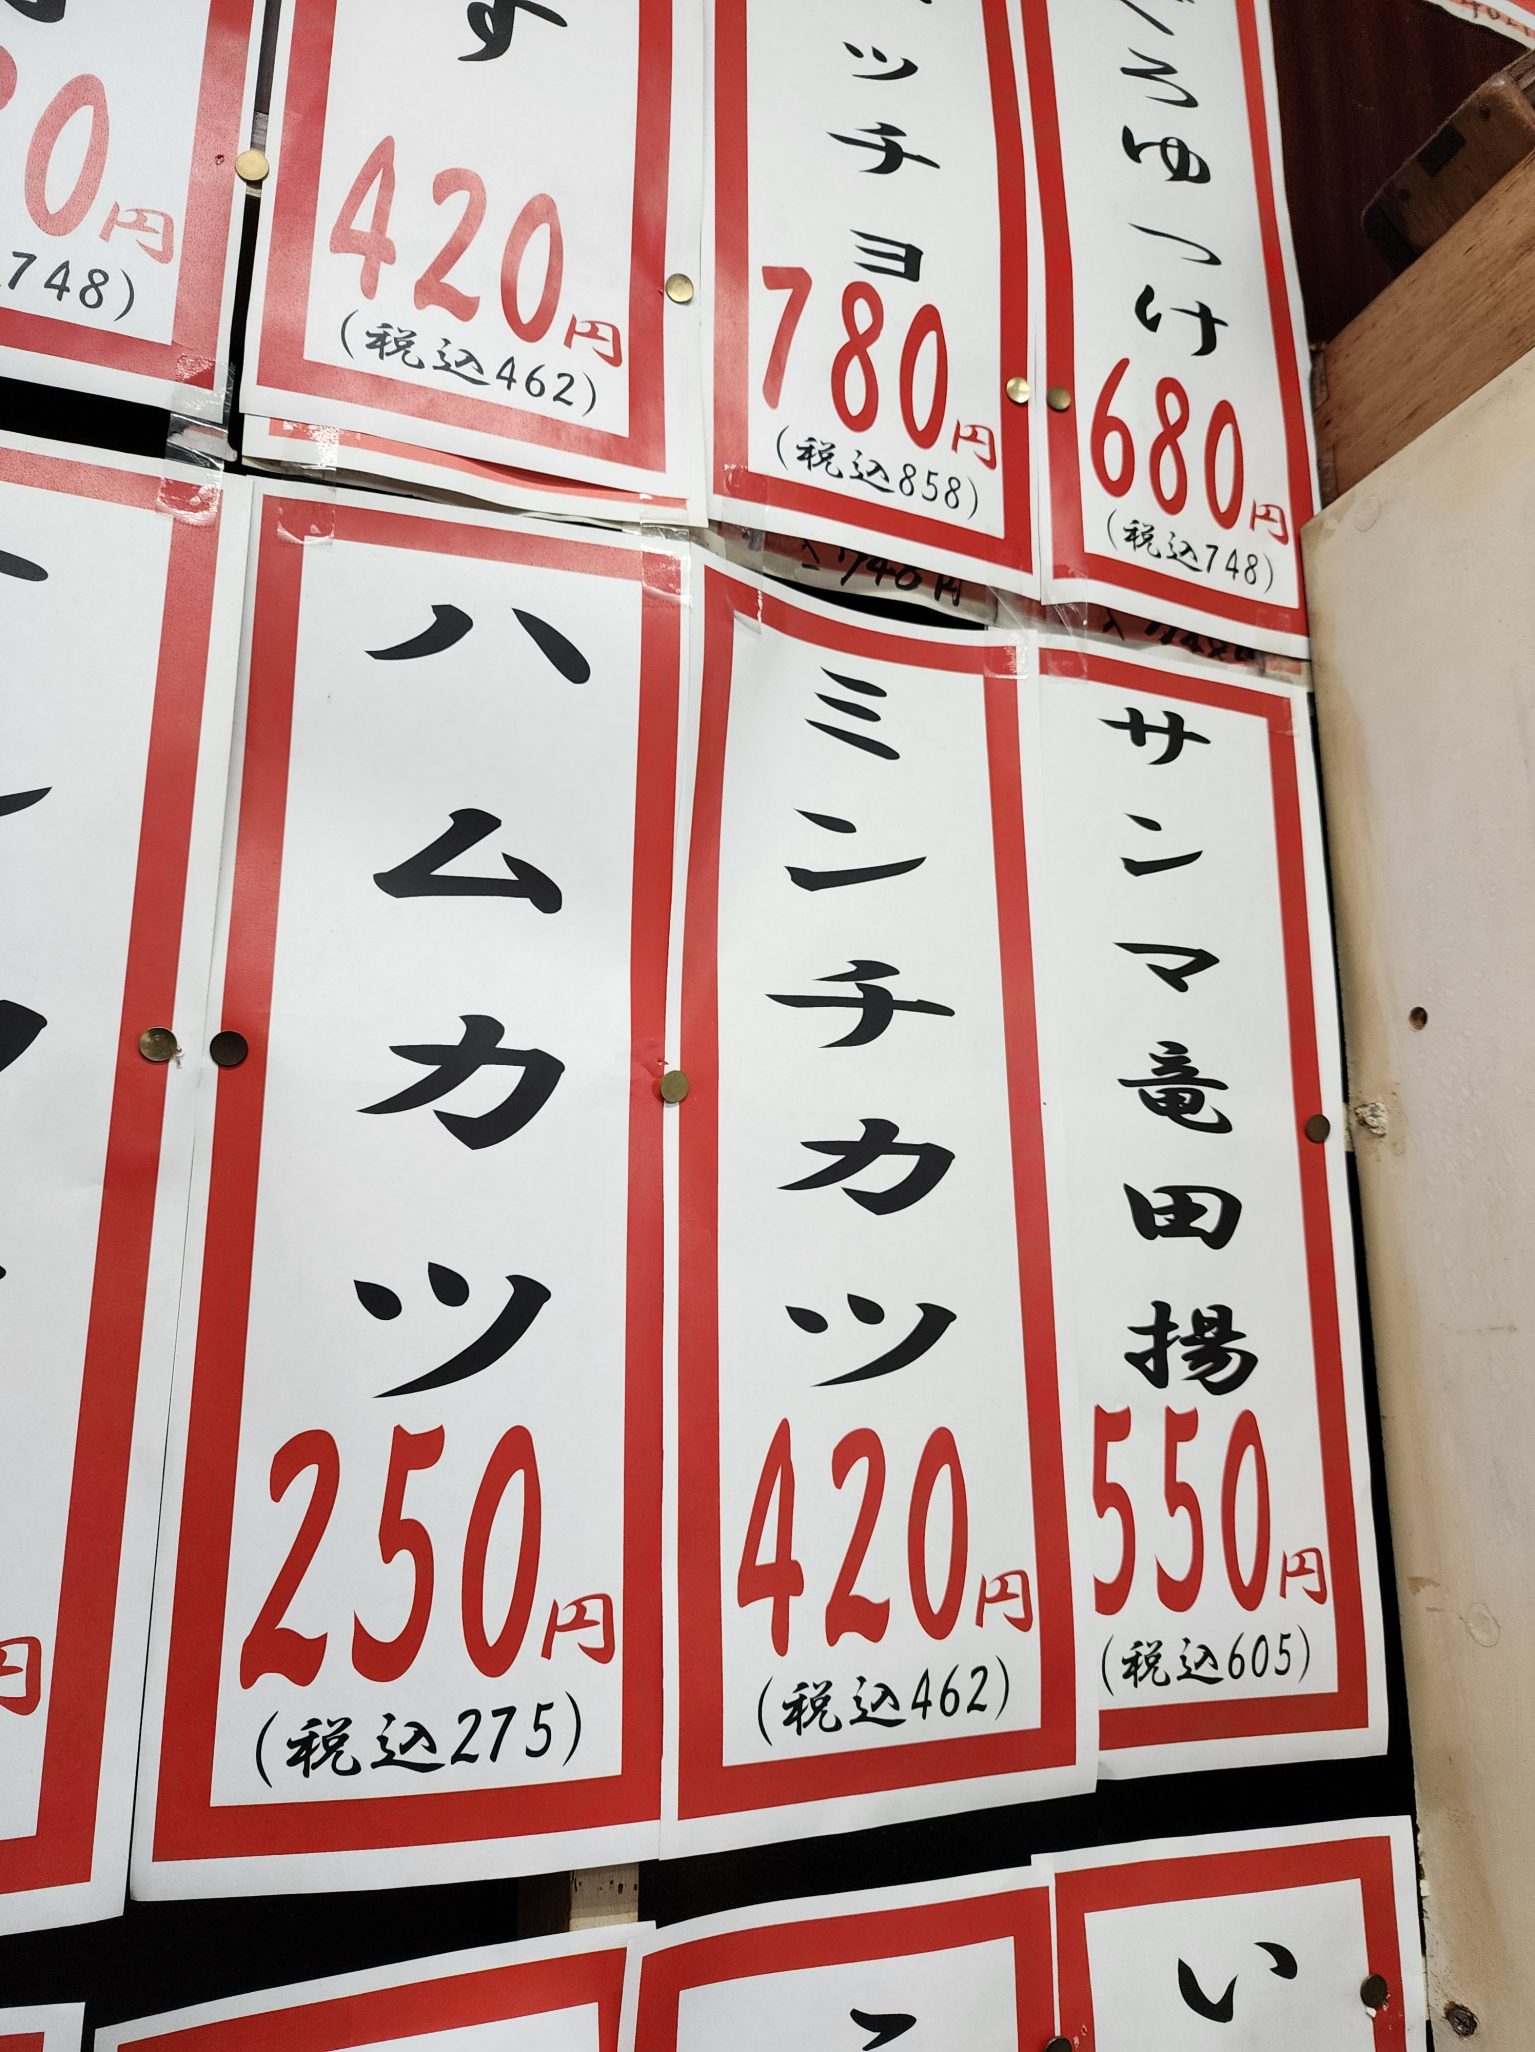 ろゆつけ
680円
(税込748)
ッチョ
780円
(税込858)
す
420円
(税込462)
0円
748)
サンマ竜田揚
550円
(税込605)
ミンチカツ
420円
(税込462)
ハムカツ
250円
(税込275)
円
い